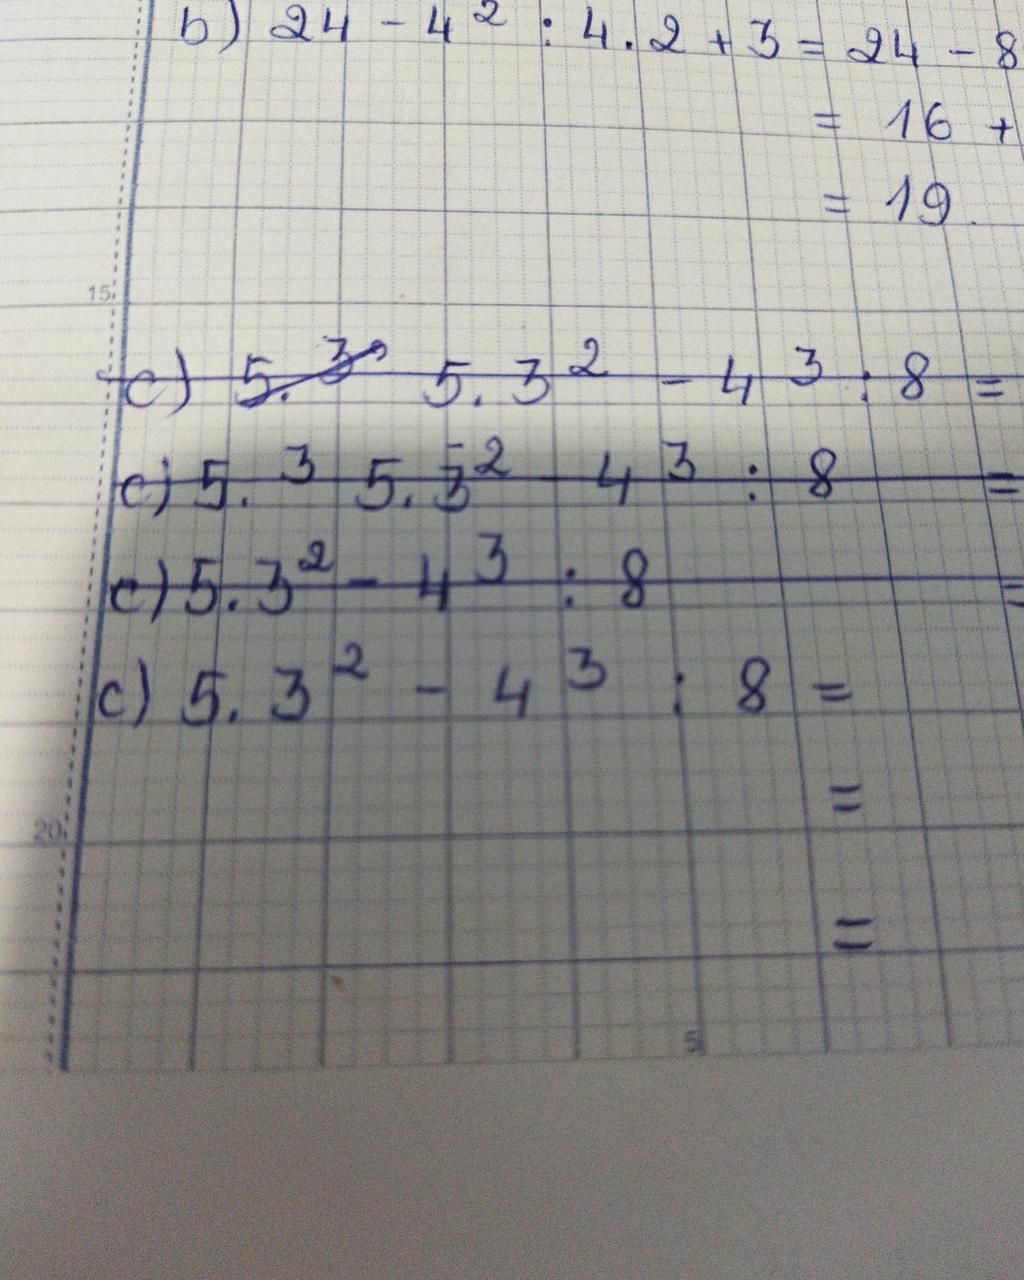 b) 24 - 4² : 4 . 2 + 3 = 24 - 8
= 16 +
= 19.
15
c) 5. ³ 5 . 3² - 4³ : 8 =
c) 5. ³ 5 . 3² - 4³ : 8 =
c) 5 . 3² - 4³ : 8 =
c) 5 . 3² - 4³ : 8 =
=
20
=
5